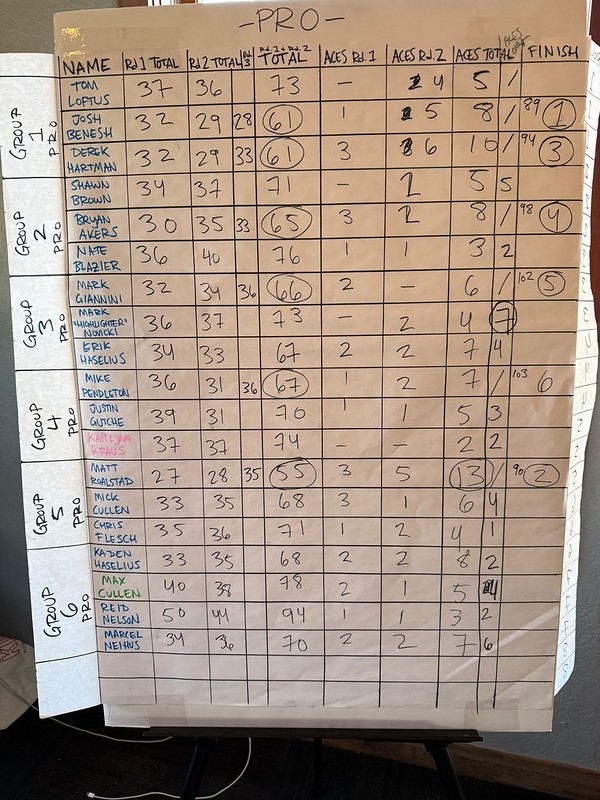 -PRO-
NAME Rd 1 TOTAL Rd 2 TOTAL Rd 3 Rd. 1 + Rd. 2 TOTAL ACES Rd. 1 ACES Rd. 2 ACES TOTAL ACES FINISH
GROUP 1 PRO
TOM LOFTUS 37 36 73 – 4 5 /
JOSH BENESH 32 29 28 61 1 5 8 / 89 1
DEREK HARTMAN 32 29 33 61 3 6 10 / 94 3
GROUP 2 PRO
SHAWN BROWN 34 37 71 – 2 5 5
BRYAN AKERS 30 35 33 65 3 2 8 / 98 4
NATE BLAZIER 36 40 76 1 1 3 2
GROUP 3 PRO
MARK GIANNINI 32 34 36 66 2 – 6 / 102 5
MARK "HIGHLIGHTER" NOVICKI 36 37 73 – 2 4 7
ERIK HASELIUS 34 33 67 2 2 7 4
GROUP 4 PRO
MIKE PENDLETON 36 31 36 67 1 2 7 / 103 6
JUSTIN GUTCHE 39 31 70 1 1 5 3
KAITLYNN KRAUS 37 37 74 – – 2 2
GROUP 5 PRO
MATT ROALSTAD 27 28 35 55 3 5 13 / 90 2
MICK CULLEN 33 35 68 3 1 6 4
CHRIS FLESCH 35 36 71 1 2 4 1
GROUP 6 PRO
KADEN HASELIUS 33 35 68 2 2 8 2
MAX CULLEN 40 38 78 2 1 5 4
REID NELSON 50 44 94 1 1 3 2
MARCEL NEIHUS 34 36 70 2 2 7 6